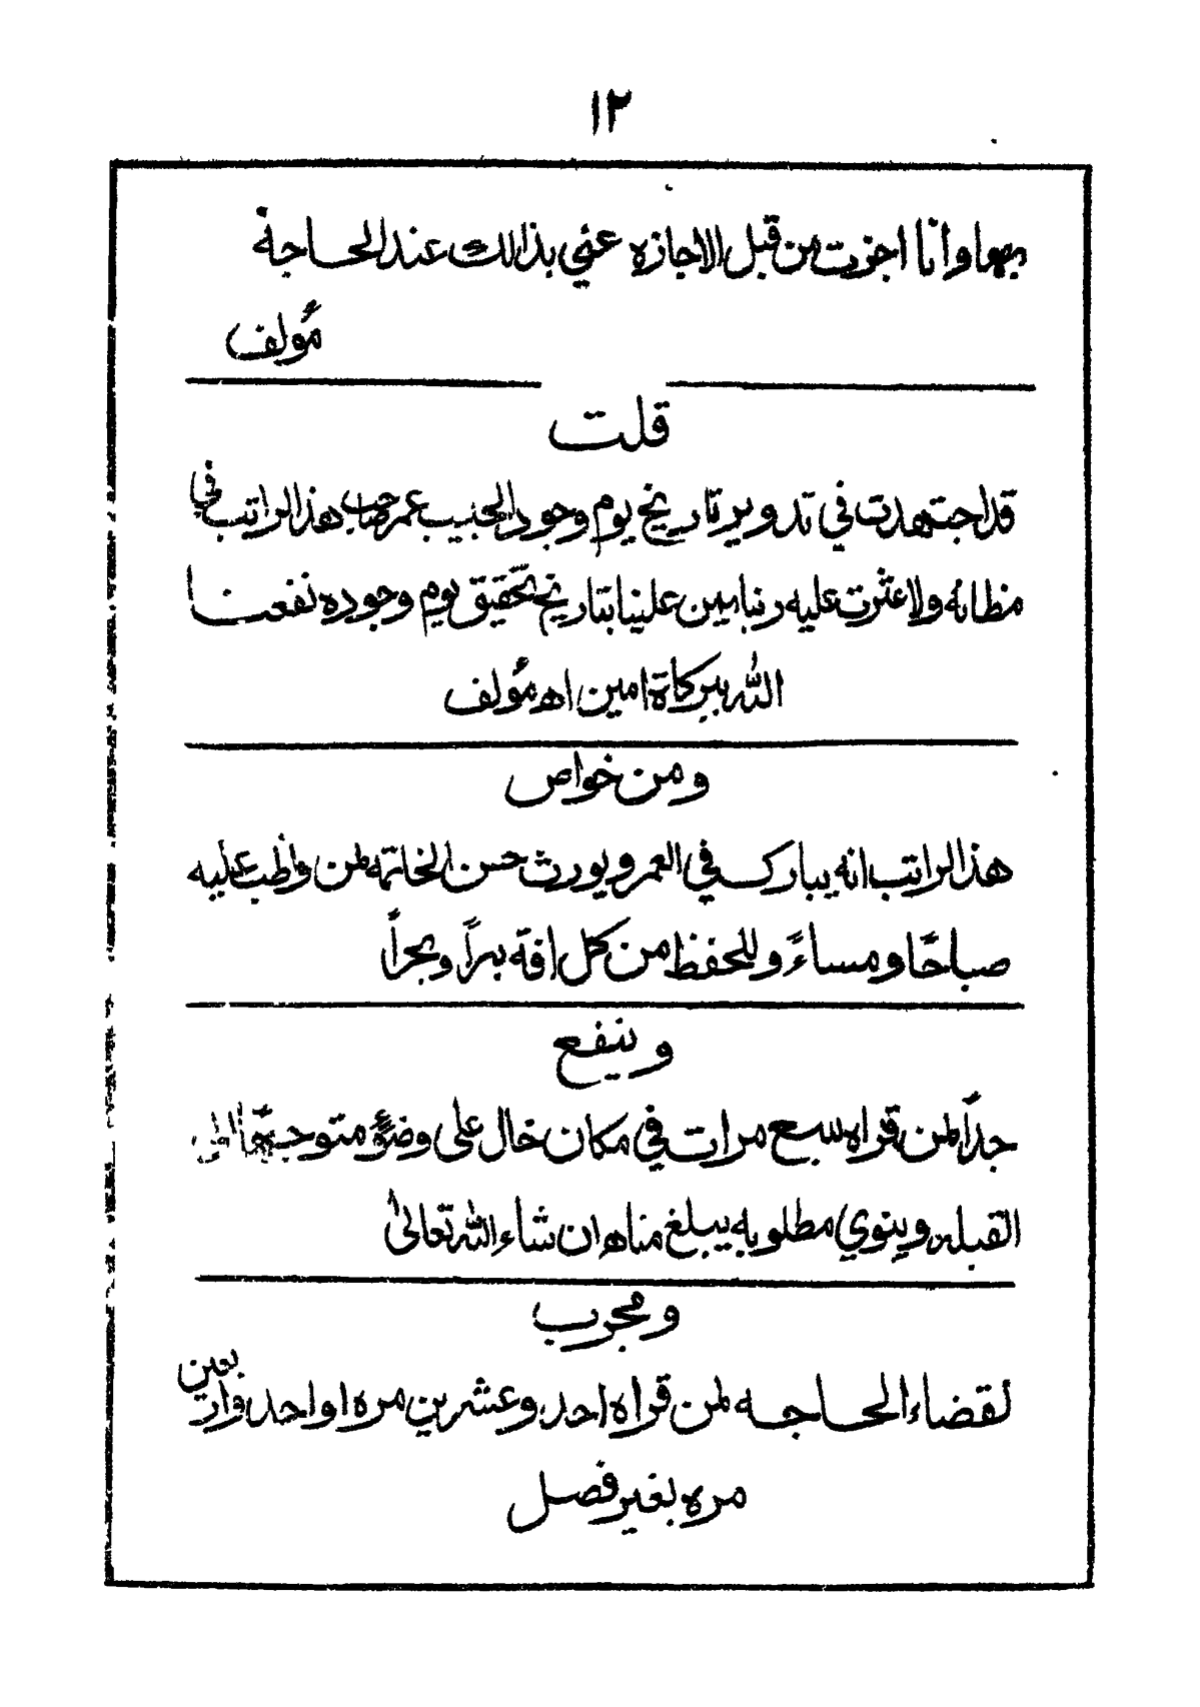 ١٢
بها وانا اجزت من قبل الاجازه عني بذالك عند الحاجة
مؤلف
قلت
قد اجتهدت في تدوير تاريخ يوم وجود الحبيب عمر صاحب هذ الراتب في
مظانه ولا عثرت عليه ربنا يمن علينا بتاريخ تحقيق يوم وجوده نفعنا
الله ببركاة امين اه مؤلف
ومن خواص
هذ الراتب انه يبارك في العمر ويورث حسن الخاتمه لمن واظب عليه
صباحًا ومساءً وللحفظ من كل افة برًا وبحرًا
وينفع
جدًا لمن قراه سبع مرات في مكان خال على وضؤ متوجهًا الى
القبله وينوي مطلوبه يبلغ مناه ان شاء الله تعالى
ومجرب
لقضاء الحاجه لمن قراه احد وعشرين مره او احد واربعين
مره بغير فصل